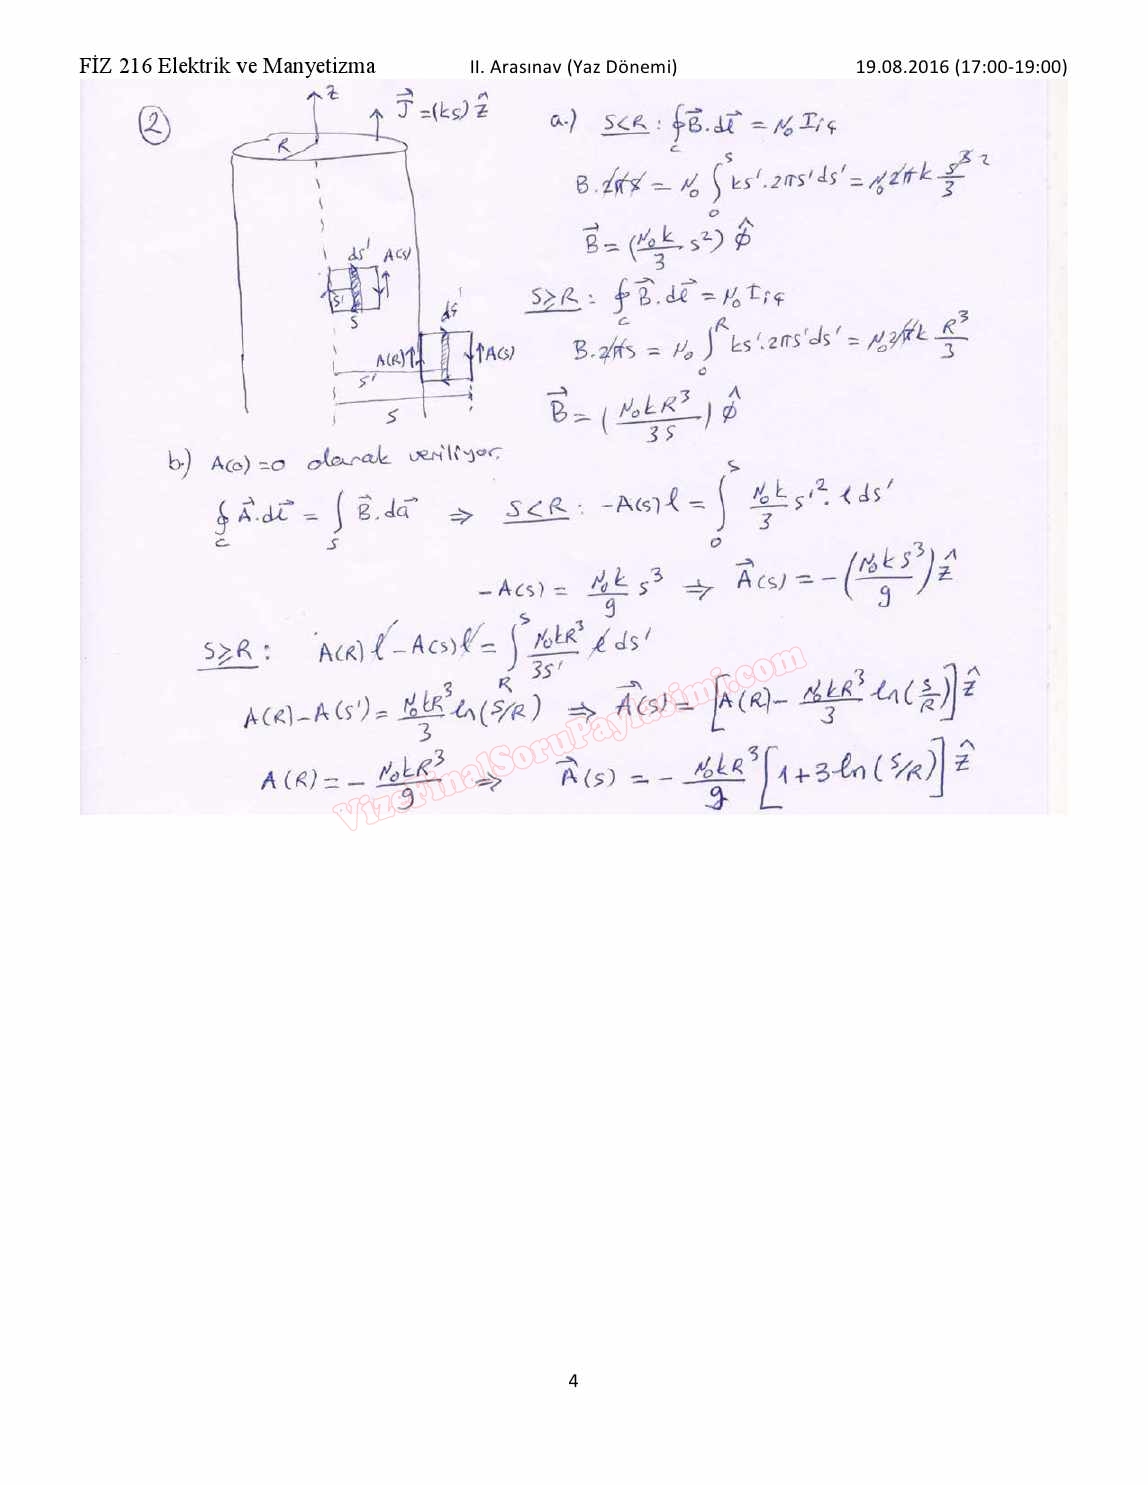 FİZ 216 Elektrik ve Manyetizma II. Arasınav (Yaz Dönemi) 19.08.2016 (17:00-19:00)
2
z
J⃗ = (ks) ẑ
R
ds' A(s)
s'
s
ds'
A(R) A(s)
s'
s
a.) s<R : ∮_C B⃗.dl⃗ = μ₀ I_iç
B.2πs = μ₀ ∫₀^s ks'.2πs'ds' = μ₀2πk s³/3 2
B⃗ = (μ₀k/3 s²) φ̂
s≥R : ∮_C B⃗.dl⃗ = μ₀ I_iç
B.2πs = μ₀ ∫₀^R ks'.2πs'ds' = μ₀2πk R³/3
B⃗ = (μ₀kR³/3s) φ̂
b.) A(0)=0 olarak veriliyor.
∮_C A⃗.dl⃗ = ∫_S B⃗.da⃗ ⇒ s<R : -A(s)l = ∫₀^s μ₀k/3 s'².l ds'
-A(s) = μ₀k/9 s³ ⇒ A⃗(s) = -(μ₀ks³/9) ẑ
s≥R : A(R)l - A(s)l = ∫_R^s μ₀kR³/3s' l ds'
A(R)-A(s') = μ₀kR³/3 ln(s/R) ⇒ A⃗(s) = [A(R) - μ₀kR³/3 ln(s/R)] ẑ
A(R) = - μ₀kR³/9 ⇒ A⃗(s) = - μ₀kR³/9 [1+3ln(s/R)] ẑ
VizeFinalSoruPaylasimi.com
4